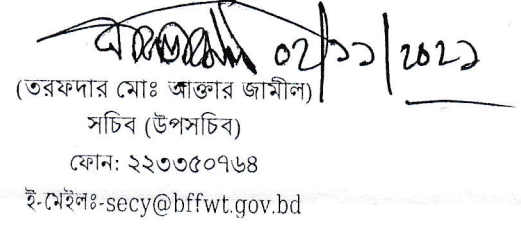 ০২/১১/২০২১
(তরফদার মোঃ আক্তার জামীল)
সচিব (উপসচিব)
ফোন: ২২৩৩৫০৭৬৪
ই-মেইলঃ-secy@bffwt.gov.bd